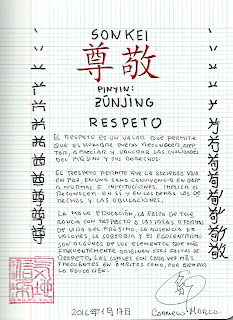 SONKEI
尊敬
PINYIN:
ZŪNJÌNG
RESPETO
EL RESPETO ES UN VALOR QUE PERMITE
QUE EL HOMBRE PUEDA RECONOCER, ACEP-
TAR, APRECIAR Y VALORAR LAS CUALIDADES
DEL PRÓJIMO Y SUS DERECHOS.
EL RESPETO PERMITE QUE LA SOCIEDAD VIVA
EN PAZ, EN UNA SANA CONVIVENCIA EN BASE
A NORMAS E INSTITUCIONES. IMPLICA EL
RECONOCER EN SÍ Y EN LOS DEMÁS LOS DE-
RECHOS Y LAS OBLIGACIONES.
LA MALA EDUCACIÓN, LA FALTA DE TOLE
RANCIA CON RESPECTO A LAS IDEAS O FORMAS
DE VIDA DEL PRÓJIMO, LA AUSENCIA DE
VALORES, LA SOBERBIA Y EL EGOCENTRISMO
SON ALGUNOS DE LOS ELEMENTOS QUE MÁS
FRECUENTEMENTE ORIGINAN ESAS FALTAS DE
RESPETO, LAS CUALES SON CADA VEZ MÁS
FRECUENTES EN ÁMBITOS COMO, POR EJEMPLO
LA EDUCACIÓN.
CARMELO MARCO